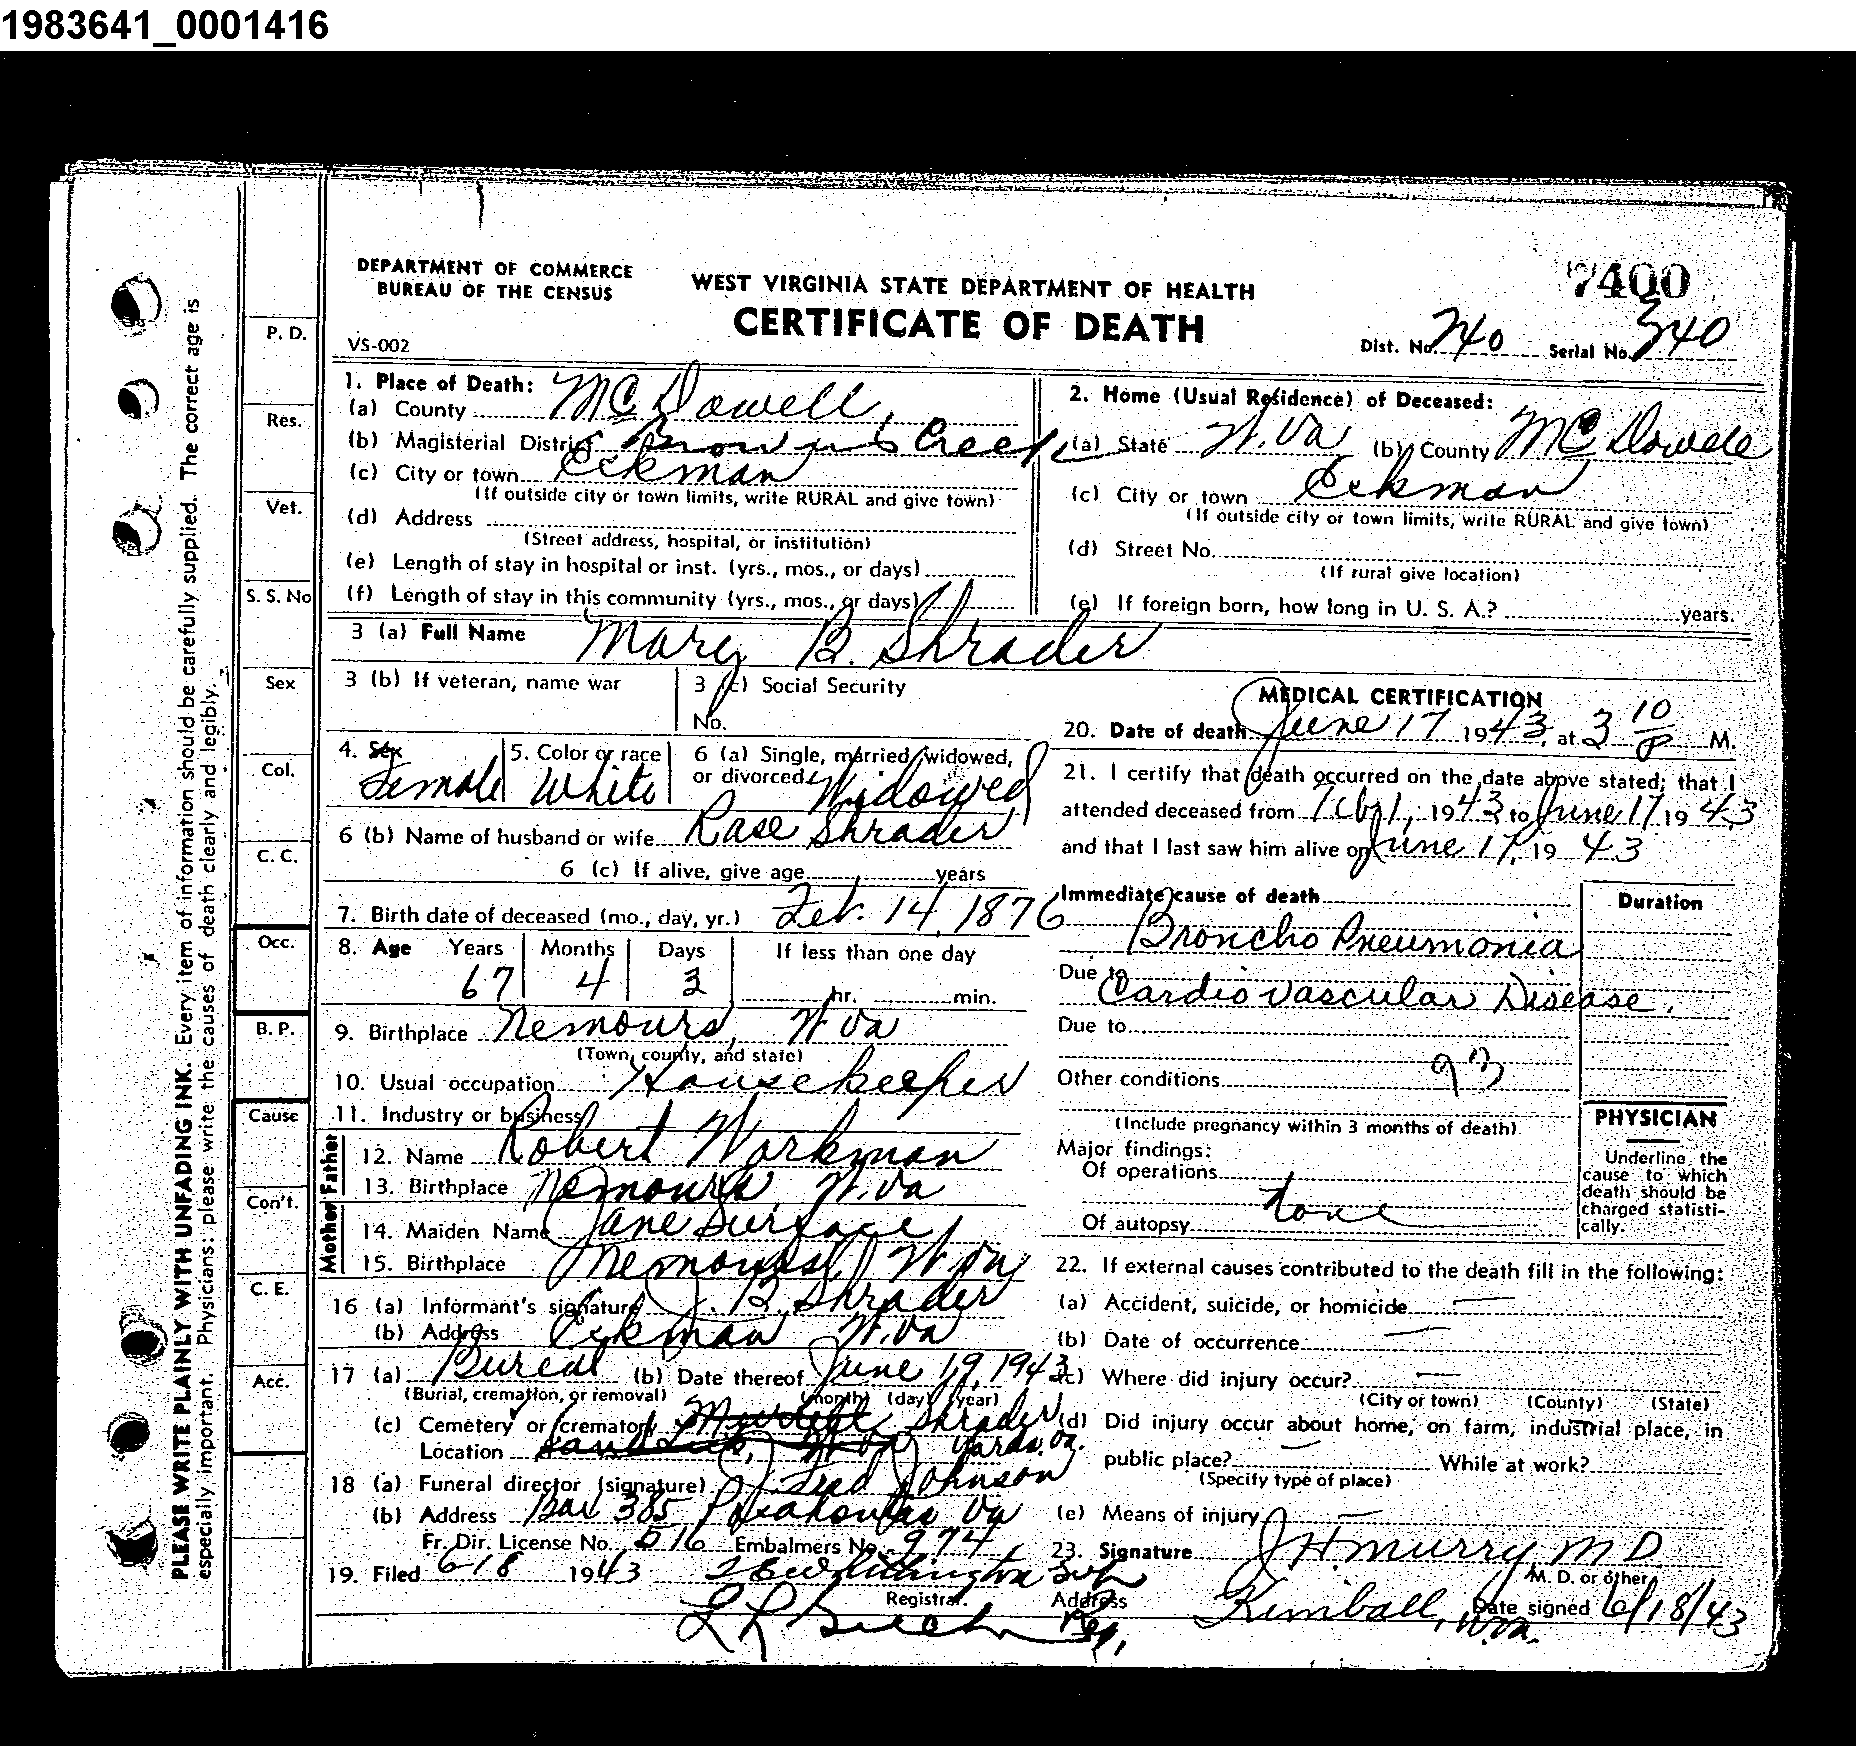 1983641_0001416
DEPARTMENT OF COMMERCE
BUREAU OF THE CENSUS
WEST VIRGINIA STATE DEPARTMENT OF HEALTH
CERTIFICATE OF DEATH
7400
VS-002
Dist. No. 740 Serial No. 340
PLEASE WRITE PLAINLY WITH UNFADING INK. Every item of information should be carefully supplied. The correct age is
especially important. Physicians: please write the causes of death clearly and legibly.
P. D.
Res.
Vet.
S. S. No
Sex
Col.
C. C.
Occ.
B. P.
Cause
Con't.
C. E.
Acc.
1. Place of Death:
(a) County McDowell,
(b) Magisterial District Browns Creek
(c) City or town Eckman
(If outside city or town limits, write RURAL and give town)
(d) Address
(Street address, hospital, or institution)
(e) Length of stay in hospital or inst. (yrs., mos., or days)
(f) Length of stay in this community (yrs., mos., or days)
2. Home (Usual Residence) of Deceased:
(a) State W. Va (b) County McDowell
(c) City or town Eckman
(If outside city or town limits, write RURAL and give town)
(d) Street No.
(If rural give location)
(e) If foreign born, how long in U. S. A.? years.
3 (a) Full Name Mary B. Shrader
3 (b) If veteran, name war
3 (c) Social Security
No.
4. Sex Female
5. Color or race White
6 (a) Single, married, widowed,
or divorced Widowed
6 (b) Name of husband or wife Rase Shrader
6 (c) If alive, give age years
7. Birth date of deceased (mo., day, yr.) Feb. 14, 1876
8. Age Years Months Days If less than one day
67 4 3 hr. min.
9. Birthplace Nemours, W Va
(Town, county, and state)
10. Usual occupation Housekeeper
11. Industry or business
Father
12. Name Robert Workman
13. Birthplace Nemours, W. Va
Mother
14. Maiden Name Jane Surface
15. Birthplace Nemours, W. Va
16 (a) Informant's signature J. B. Shrader
(b) Address Eckman W. Va
17 (a) Bureal (b) Date thereof June 19, 1943
(Burial, cremation, or removal) (month) (day) (year)
(c) Cemetery or crematory Shrader
Location Yards, Va.
18 (a) Funeral director (signature) Fred Johnson
(b) Address Box 385 Pocahontas Va
Fr. Dir. License No. 516 Embalmers No. 974
19. Filed 6 18 1943
Registrar.
MEDICAL CERTIFICATION
20. Date of death June 17 1943, at 3 10 P M.
21. I certify that death occurred on the date above stated; that I
attended deceased from Feb 1, 1943 to June 17 1943
and that I last saw him alive on June 17, 1943
Immediate cause of death Duration
Broncho Pneumonia
Due to
Cardio Vascular Disease.
Due to
Other conditions
(Include pregnancy within 3 months of death)
Major findings:
Of operations
Of autopsy None
PHYSICIAN
Underline the
cause to which
death should be
charged statisti-
cally.
22. If external causes contributed to the death fill in the following:
(a) Accident, suicide, or homicide —
(b) Date of occurrence —
(c) Where did injury occur? —
(City or town) (County) (State)
(d) Did injury occur about home, on farm, industrial place, in
public place? — While at work?
(Specify type of place)
(e) Means of injury —
23. Signature J H Murry, M D
M. D. or other
Address Kimball, W. Va. Date signed 6/18/43